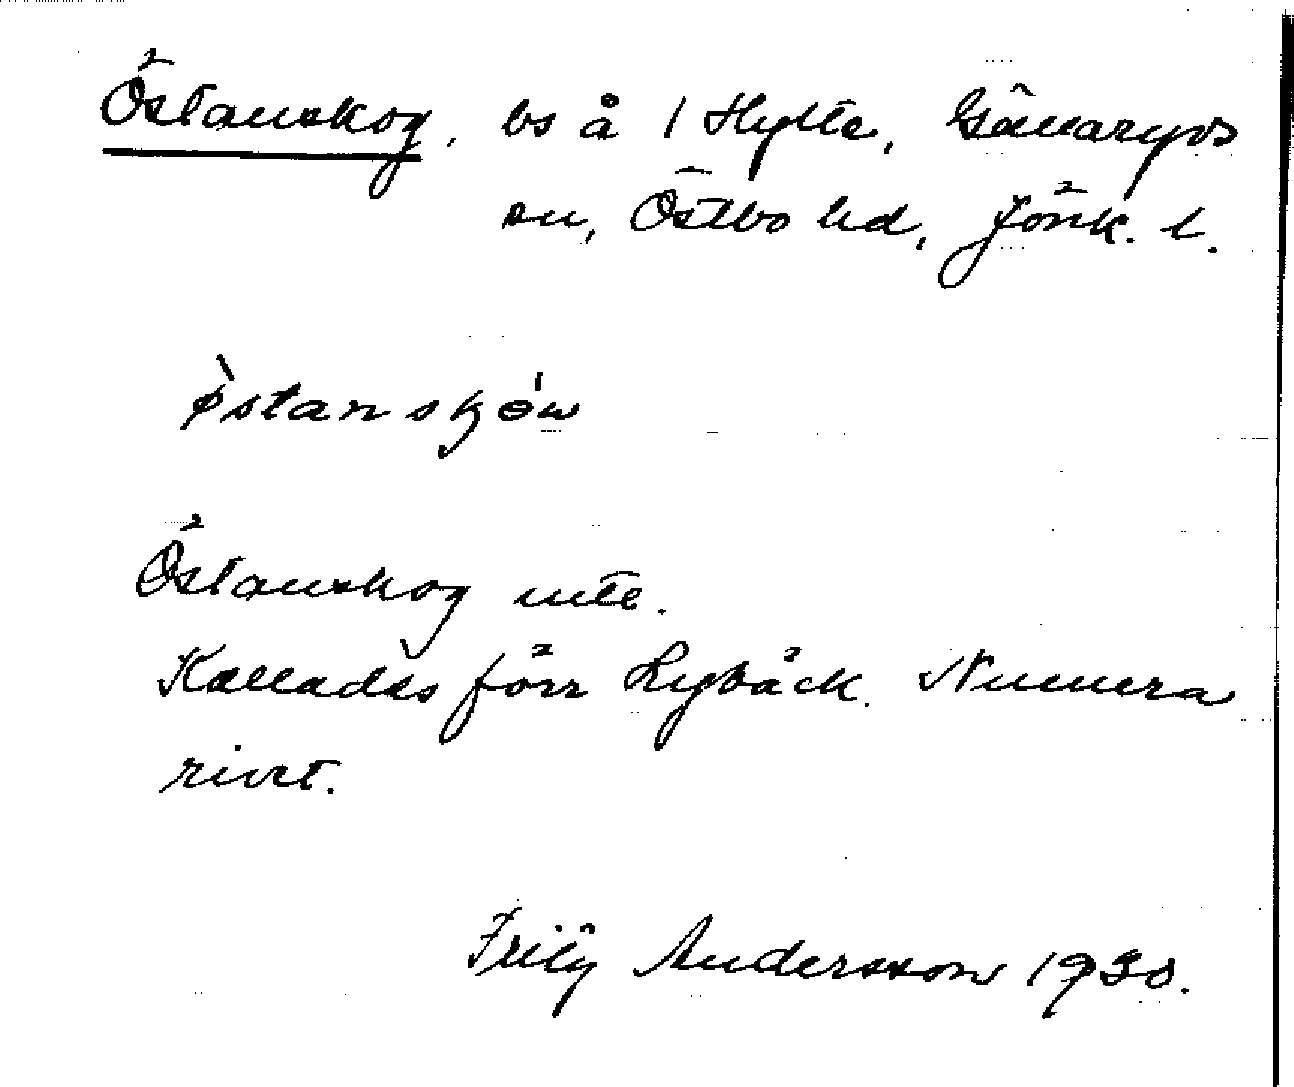 Östanskog, bs å 1 Hylte, Gällaryds
sn, Östbo hd, Jönk. l.
Östanskog
Kallades förr Lybäck. Numera
rivet.
Andersson 1930.